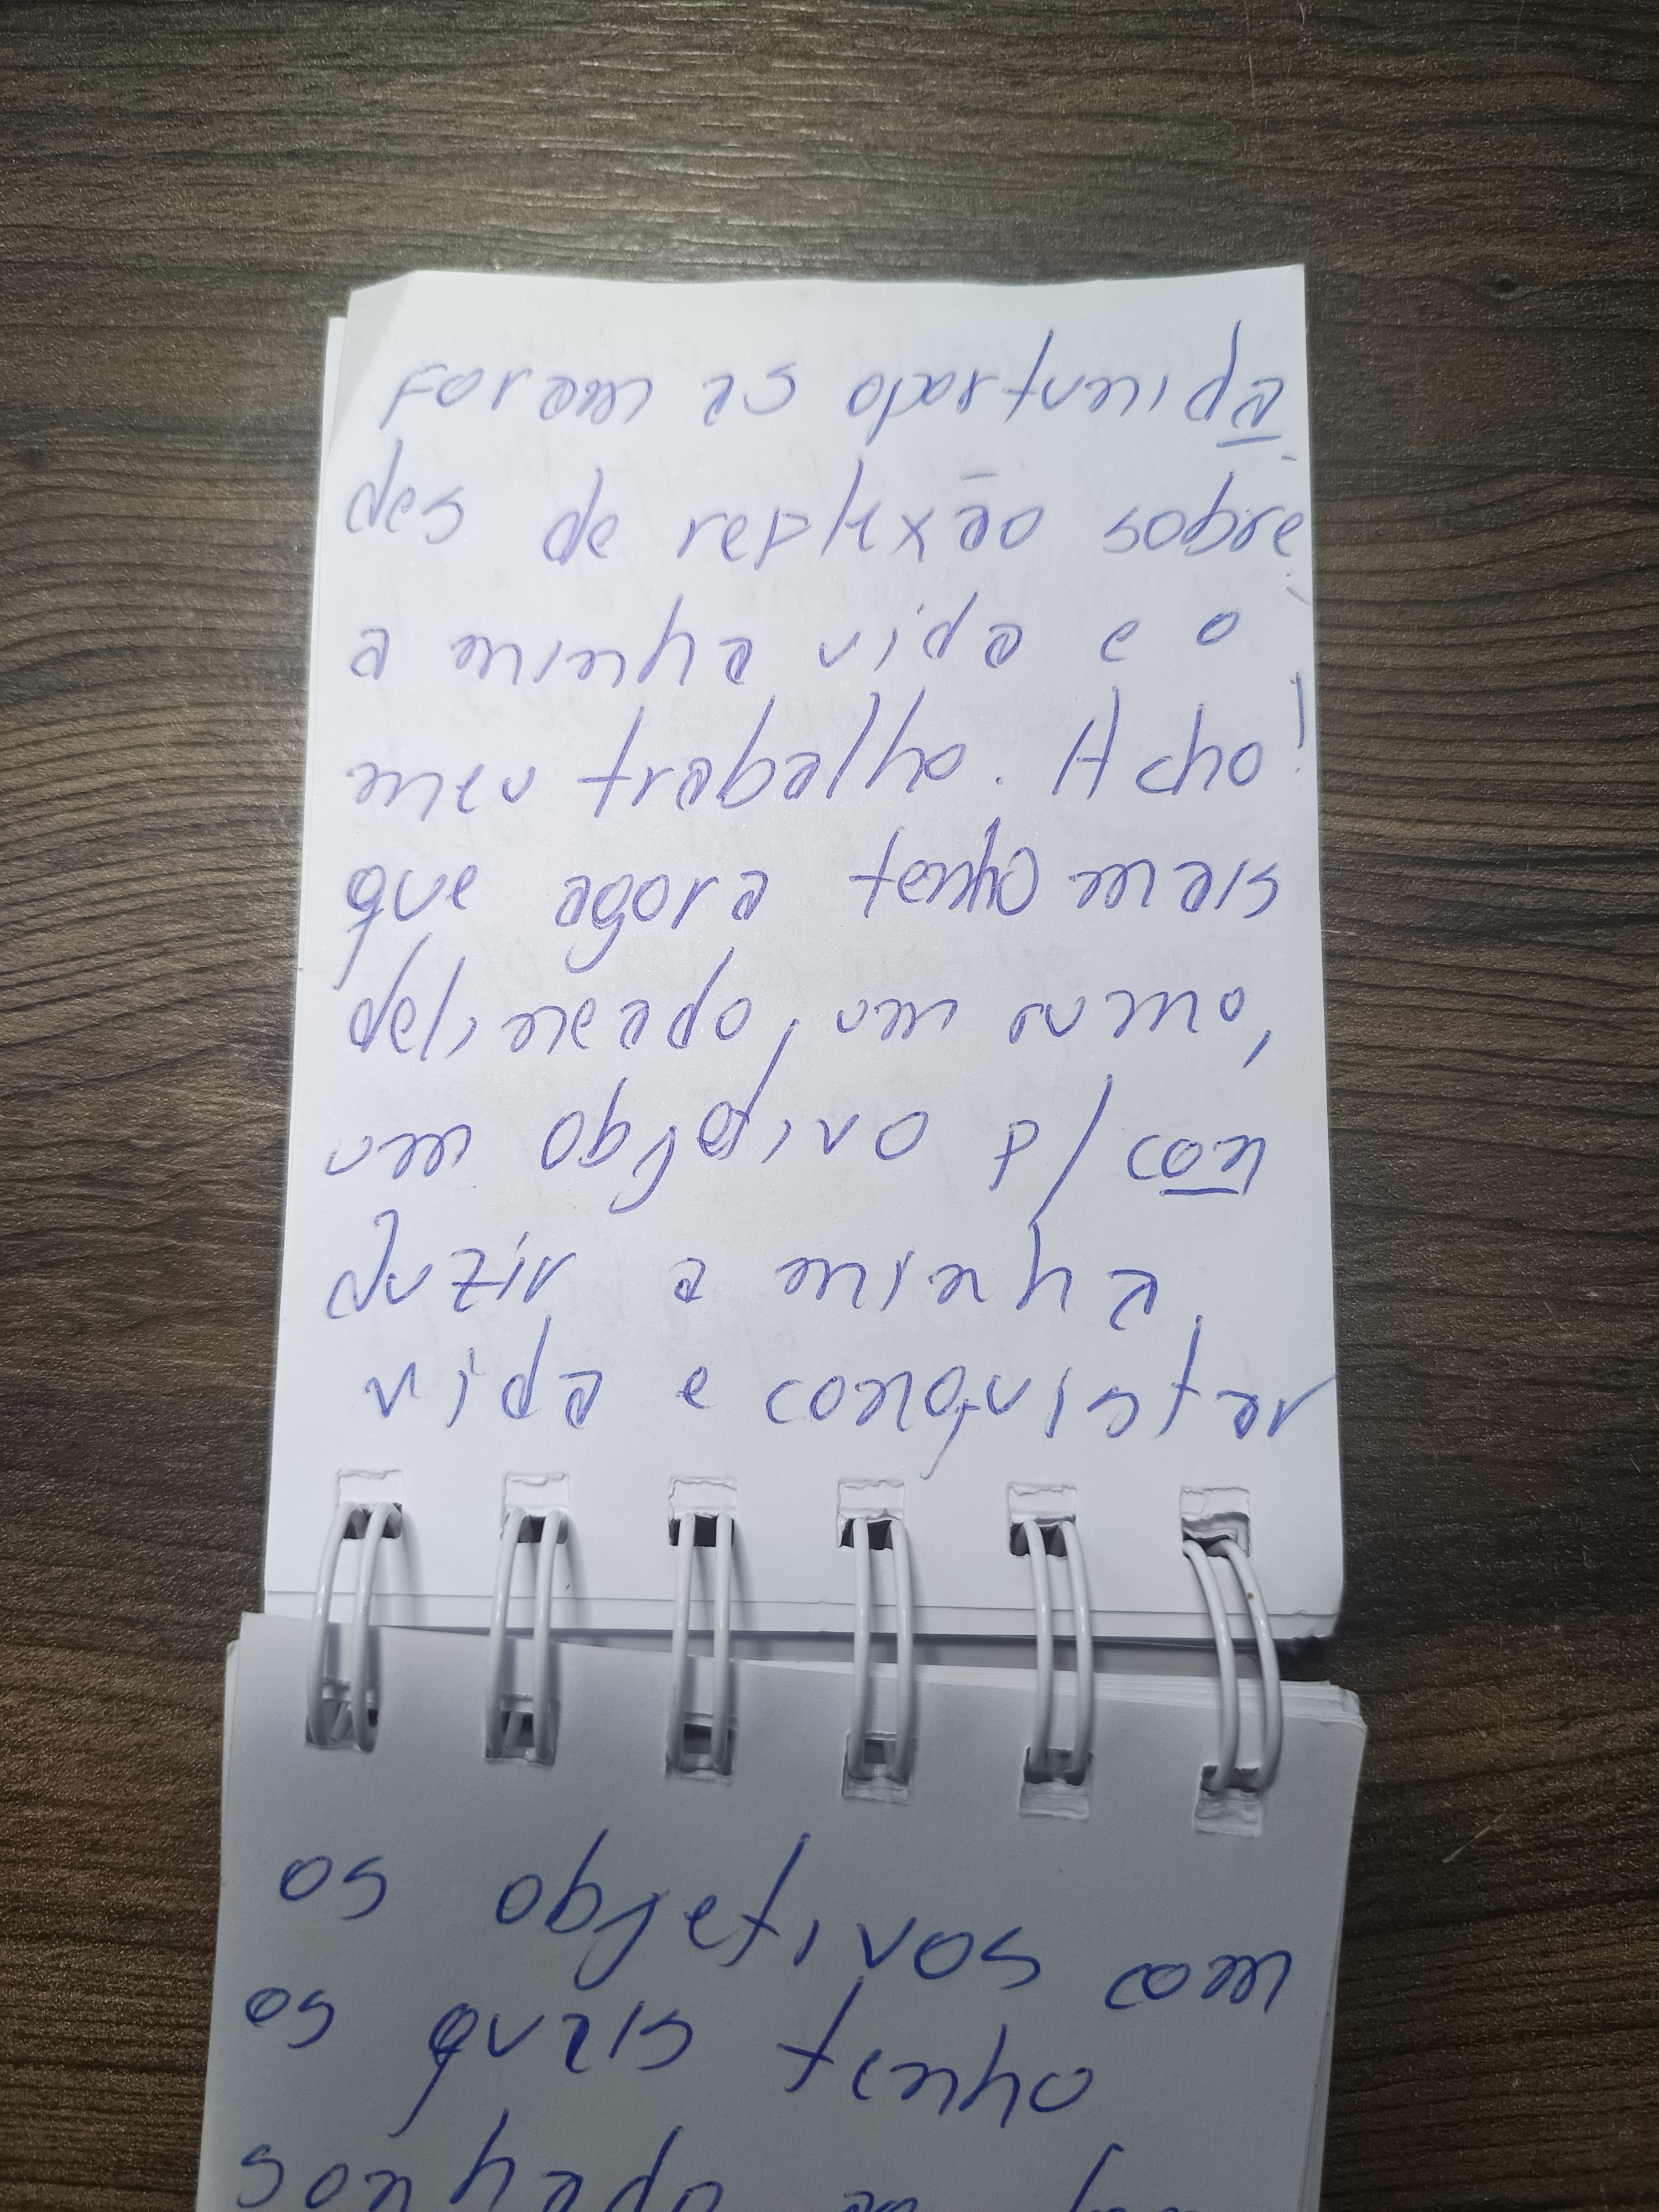 foram as oportunida
des de reflexão sobre
a minha vida e o
meu trabalho. Acho
que agora tenho mais
delineado, um rumo,
um objetivo p/ con
duzir a minha
vida e conquistar
os objetivos com
os quais tenho
sonhado ao